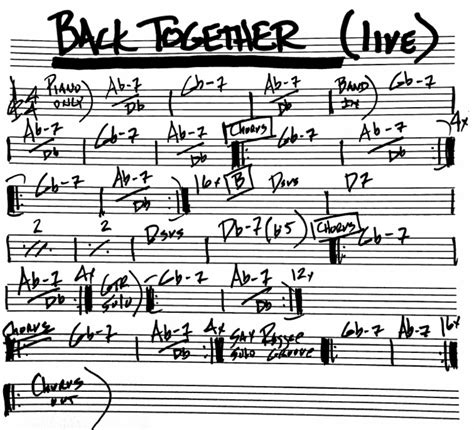 BACK TOGETHER (live)
PIANO ONLY) Ab-7/Db Gb-7 Ab-7/Db BAND IN) Gb-7
Ab-7/Db Gb-7 Ab-7/Db CHORUS Gb-7 Ab-7/Db 4x
Gb-7 Ab-7/Db 16x B Dsus D7
2 2 Dsus Db-7(b5) CHORUS Gb-7
Ab-7/Db 4x GTR SOLO) Gb-7 Ab-7/Db 12x
CHORUS Gb-7 Ab-7/Db 4x SAX SOLO Reggae GROOVE Gb-7 Ab-7 16x
CHORUS OUT)